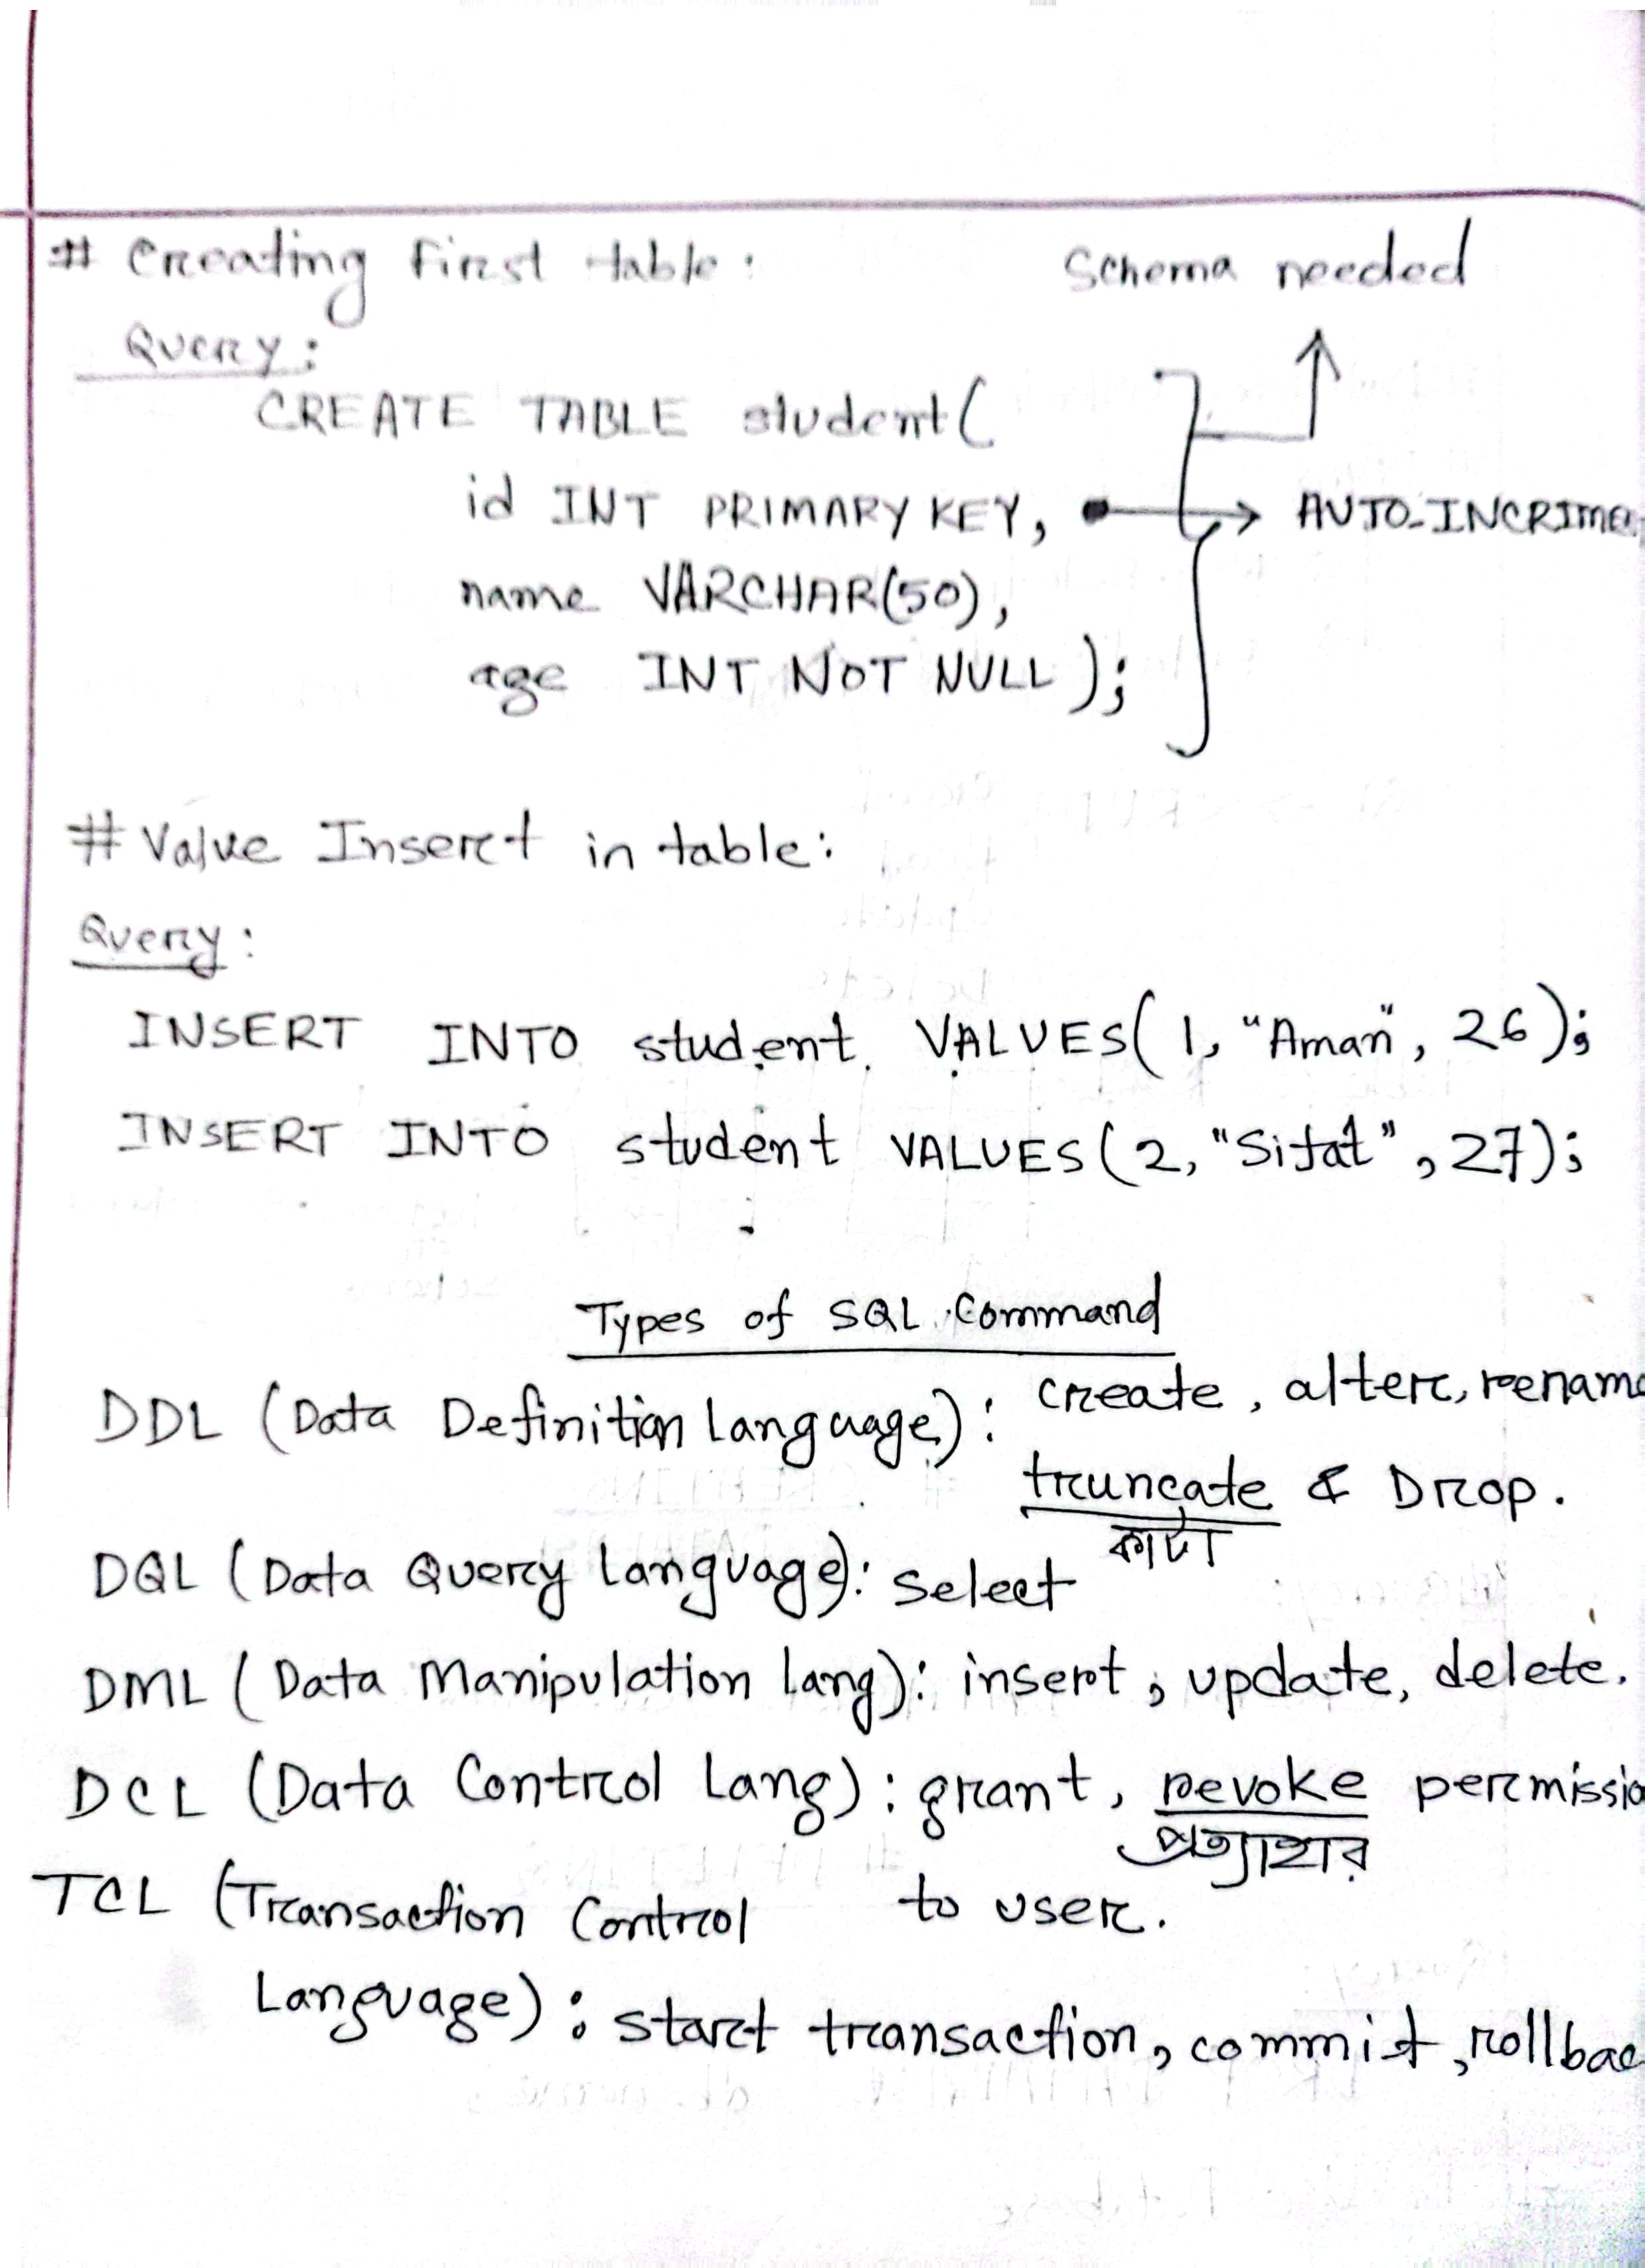 # Creating first table:
Schema needed
Query:
CREATE TABLE student(
id INT PRIMARY KEY, → AUTO_INCRIME
name VARCHAR(50),
age INT NOT NULL );
# Value Insert in table:
Query:
INSERT INTO student VALUES( 1, "Aman", 26 );
INSERT INTO student VALUES( 2, "Sifat", 27);
Types of SQL Command
DDL (Data Definition Language): create, alter, rename
truncate & Drop.
কাটা
DQL (Data Query Language): select
DML ( Data Manipulation lang): insert, update, delete.
DCL (Data Control Lang): grant, revoke permissio
প্রত্যাহার
TCL (Transaction Control
to user.
Language): start transaction, commit, rollbac